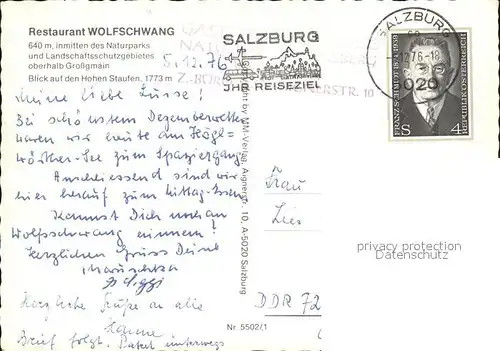 Restaurant WOLFSCHWANG
640 m, inmitten des Naturparks
und Landschaftsschutzgebietes
oberhalb Großgmain
Blick auf den Hohen Staufen, 1773 m
5.12.76
SALZBURG
IHR REISEZIEL
SALZBURG
76-18
5020
FRANZ SCHMIDT 1874-1939
REPUBLIK ÖSTERREICH
S 4
Meine liebe Lusse!
Bei schönstem Dezemberwetter
waren wir heute am Högl-
wörther-See zum Spaziergang
Anschliessend sind wir
hier herauf zum Mittag-Essen
Kannst Dich noch an
Wolfschwang erinnern?
Herzlichen Gruss Deine
Mauschka
Herzliche Grüße an alle
Hanne
Brief folgt. Paket unterwegs
Copyright by MM-Verlag, Aignerstr. 10, A-5020 Salzburg
Frau
Lies
DDR 72
Nr. 5502/1
privacy protection
Datenschutz